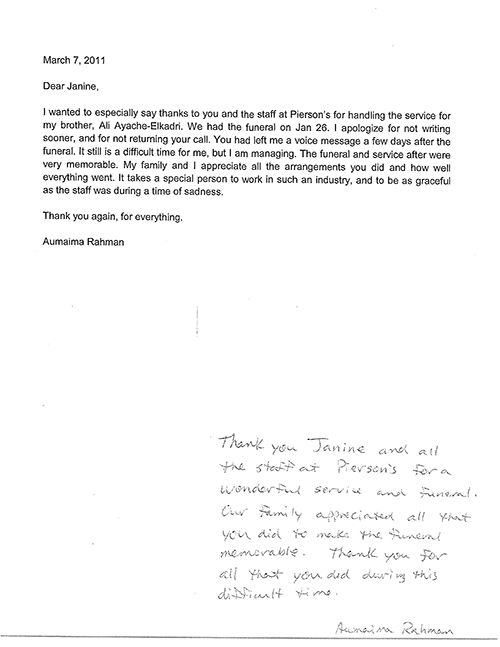 March 7, 2011
Dear Janine,
I wanted to especially say thanks to you and the staff at Pierson's for handling the service for
my brother, Ali Ayache-Elkadri. We had the funeral on Jan 26. I apologize for not writing
sooner, and for not returning your call. You had left me a voice message a few days after the
funeral. It still is a difficult time for me, but I am managing. The funeral and service after were
very memorable. My family and I appreciate all the arrangements you did and how well
everything went. It takes a special person to work in such an industry, and to be as graceful
as the staff was during a time of sadness.
Thank you again, for everything.
Aumaima Rahman
Thank you Janine and all
the staff at Pierson's for a
wonderful service and funeral.
Our family appreciated all that
you did to make the funeral
memorable. Thank you for
all that you did during this
difficult time.
Aumaima Rahman